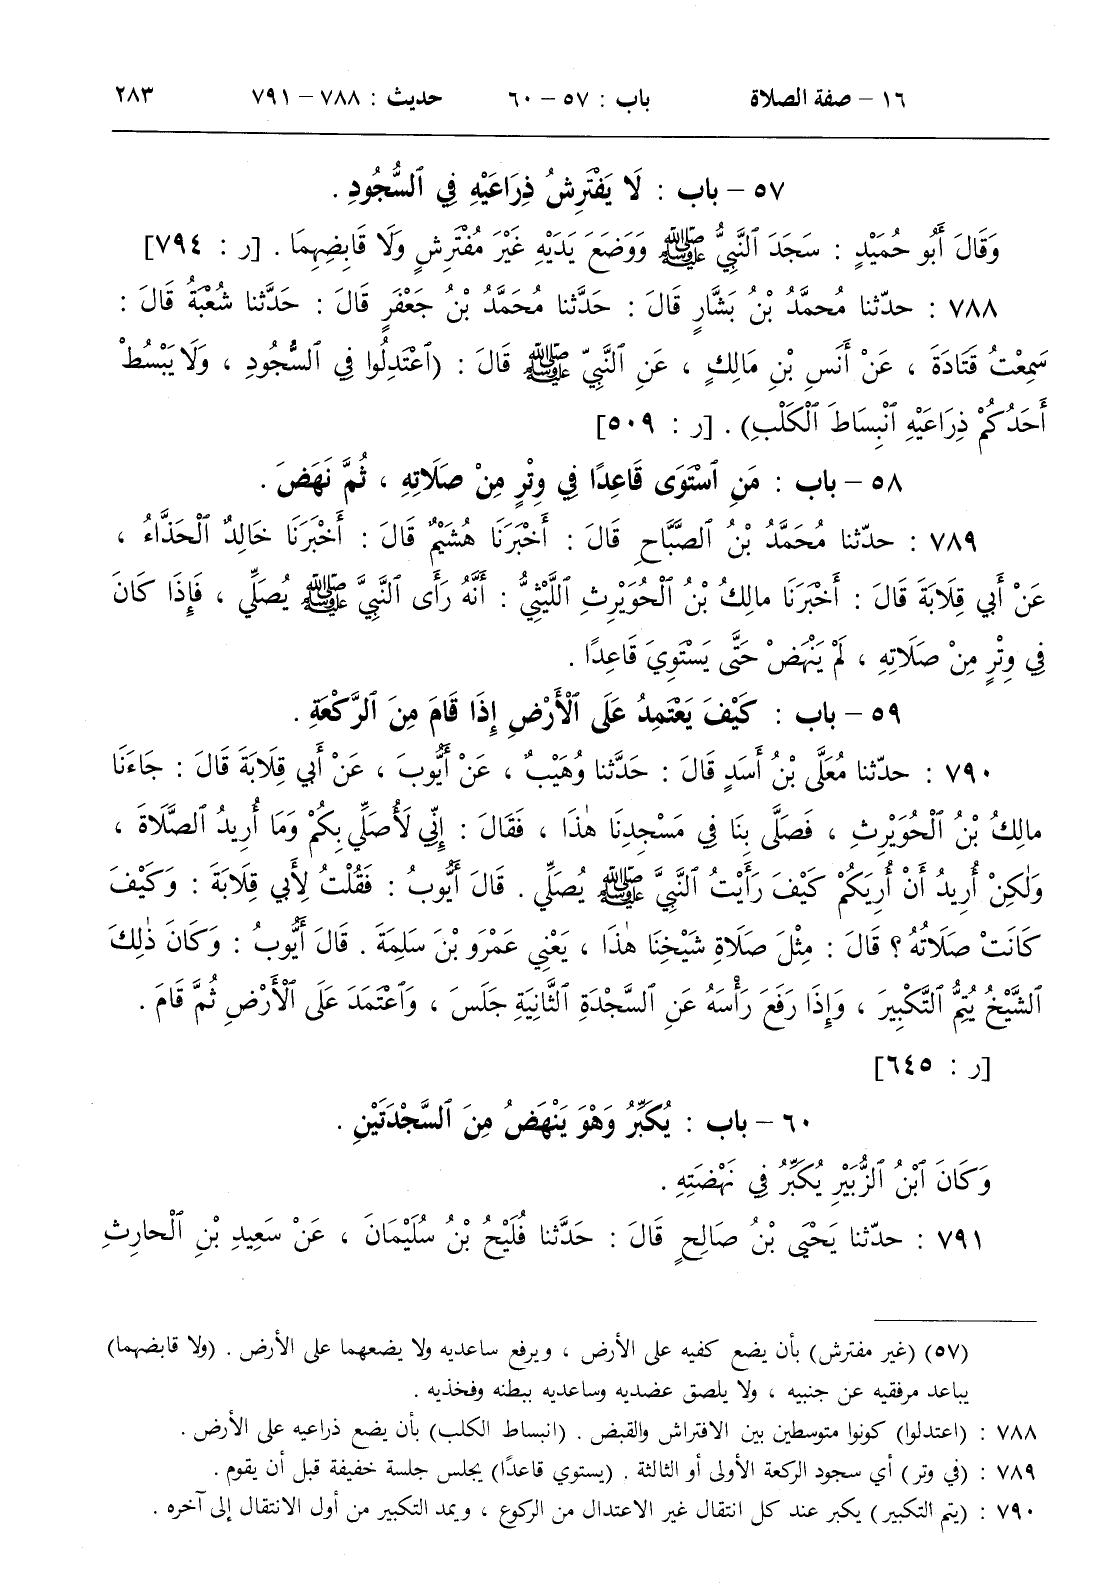 ١٦ – صفة الصلاة باب : ٥٧ – ٦٠ حديث : ٧٨٨ – ٧٩١ ٢٨٣
٥٧ – باب : لَا يَفْتَرِشُ ذِرَاعَيْهِ فِي ٱلسُّجُودِ .
وَقَالَ أَبُو حُمَيْدٍ : سَجَدَ ٱلنَّبِيُّ ﷺ وَوَضَعَ يَدَيْهِ غَيْرَ مُفْتَرِشٍ وَلَا قَابِضِهِمَا . [ر : ٧٩٤]
٧٨٨ : حدّثنا مُحمَّدُ بْنُ بَشَّارٍ قَالَ : حَدَّثنا مُحَمَّدُ بْنُ جَعْفَرٍ قَالَ : حَدَّثنا شُعْبَةُ قَالَ :
سَمِعْتُ قَتَادَةَ ، عَنْ أَنَسِ بْنِ مَالِكٍ ، عَنِ ٱلنَّبِيِّ ﷺ قَالَ : (ٱعْتَدِلُوا فِي ٱلسُّجُودِ ، وَلَا يَبْسُطْ
أَحَدُكُمْ ذِرَاعَيْهِ ٱنْبِسَاطَ ٱلْكَلْبِ) . [ر : ٥٠٩]
٥٨ – باب : مَنِ ٱسْتَوَى قَاعِدًا فِي وِتْرٍ مِنْ صَلَاتِهِ ، ثُمَّ نَهَضَ .
٧٨٩ : حدّثنا مُحَمَّدُ بْنُ ٱلصَّبَّاحِ قَالَ : أَخْبَرَنَا هُشَيْمٌ قَالَ : أَخْبَرَنَا خَالِدٌ ٱلْحَذَّاءُ ،
عَنْ أَبِي قِلَابَةَ قَالَ : أَخْبَرَنَا مالِكُ بْنُ ٱلْحُوَيْرِثِ ٱللَّيْثِيُّ : أَنَّهُ رَأَى ٱلنَّبِيَّ ﷺ يُصَلِّي ، فَإِذَا كَانَ
فِي وِتْرٍ مِنْ صَلَاتِهِ ، لَمْ يَنْهَضْ حَتَّى يَسْتَوِيَ قَاعِدًا .
٥٩ – باب : كَيْفَ يَعْتَمِدُ عَلَى ٱلْأَرْضِ إِذَا قَامَ مِنَ ٱلرَّكْعَةِ .
٧٩٠ : حدّثنا مُعَلَّى بْنُ أَسَدٍ قَالَ : حَدَّثنا وُهَيْبٌ ، عَنْ أَيُّوبَ ، عَنْ أَبِي قِلَابَةَ قَالَ : جَاءَنَا
مالِكُ بْنُ ٱلْحُوَيْرِثِ ، فَصَلَّى بِنَا فِي مَسْجِدِنَا هٰذَا ، فَقَالَ : إِنِّي لَأُصَلِّي بِكُمْ وَمَا أُرِيدُ ٱلصَّلَاةَ ،
وَلٰكِنْ أُرِيدُ أَنْ أُرِيَكُمْ كَيْفَ رَأَيْتُ ٱلنَّبِيَّ ﷺ يُصَلِّي . قَالَ أَيُّوبُ : فَقُلْتُ لِأَبِي قِلَابَةَ : وَكَيْفَ
كَانَتْ صَلَاتُهُ ؟ قَالَ : مِثْلَ صَلَاةِ شَيْخِنَا هٰذَا ، يَعْنِي عَمْرَو بْنَ سَلِمَةَ . قَالَ أَيُّوبُ : وَكَانَ ذٰلِكَ
ٱلشَّيْخُ يُتِمُّ ٱلتَّكْبِيرَ ، وَإِذَا رَفَعَ رَأْسَهُ عَنِ ٱلسَّجْدَةِ ٱلثَّانِيَةِ جَلَسَ ، وَٱعْتَمَدَ عَلَى ٱلْأَرْضِ ثُمَّ قَامَ .
[ر : ٦٤٥]
٦٠ – باب : يُكَبِّرُ وَهْوَ يَنْهَضُ مِنَ ٱلسَّجْدَتَيْنِ .
وَكَانَ ٱبْنُ ٱلزُّبَيْرِ يُكَبِّرُ فِي نَهْضَتِهِ .
٧٩١ : حدّثنا يَحْيَى بْنُ صَالِحٍ قَالَ : حَدَّثنا فُلَيْحُ بْنُ سُلَيْمَانَ ، عَنْ سَعِيدِ بْنِ ٱلْحارِثِ
(٥٧) (غير مفترش) بأن يضع كفيه على الأرض ، ويرفع ساعديه ولا يضعهما على الأرض . (ولا قابضهما)
يباعد مرفقيه عن جنبيه ، ولا يلصق عضديه وساعديه ببطنه وفخذيه .
٧٨٨ : (اعتدلوا) كونوا متوسطين بين الافتراش والقبض . (انبساط الكلب) بأن يضع ذراعيه على الأرض .
٧٨٩ : (في وتر) أي سجود الركعة الأولى أو الثالثة . (يستوي قاعدًا) يجلس جلسة خفيفة قبل أن يقوم .
٧٩٠ : (يتم التكبير) يكبر عند كل انتقال غير الاعتدال من الركوع ، ويمد التكبير من أول الانتقال إلى آخره .